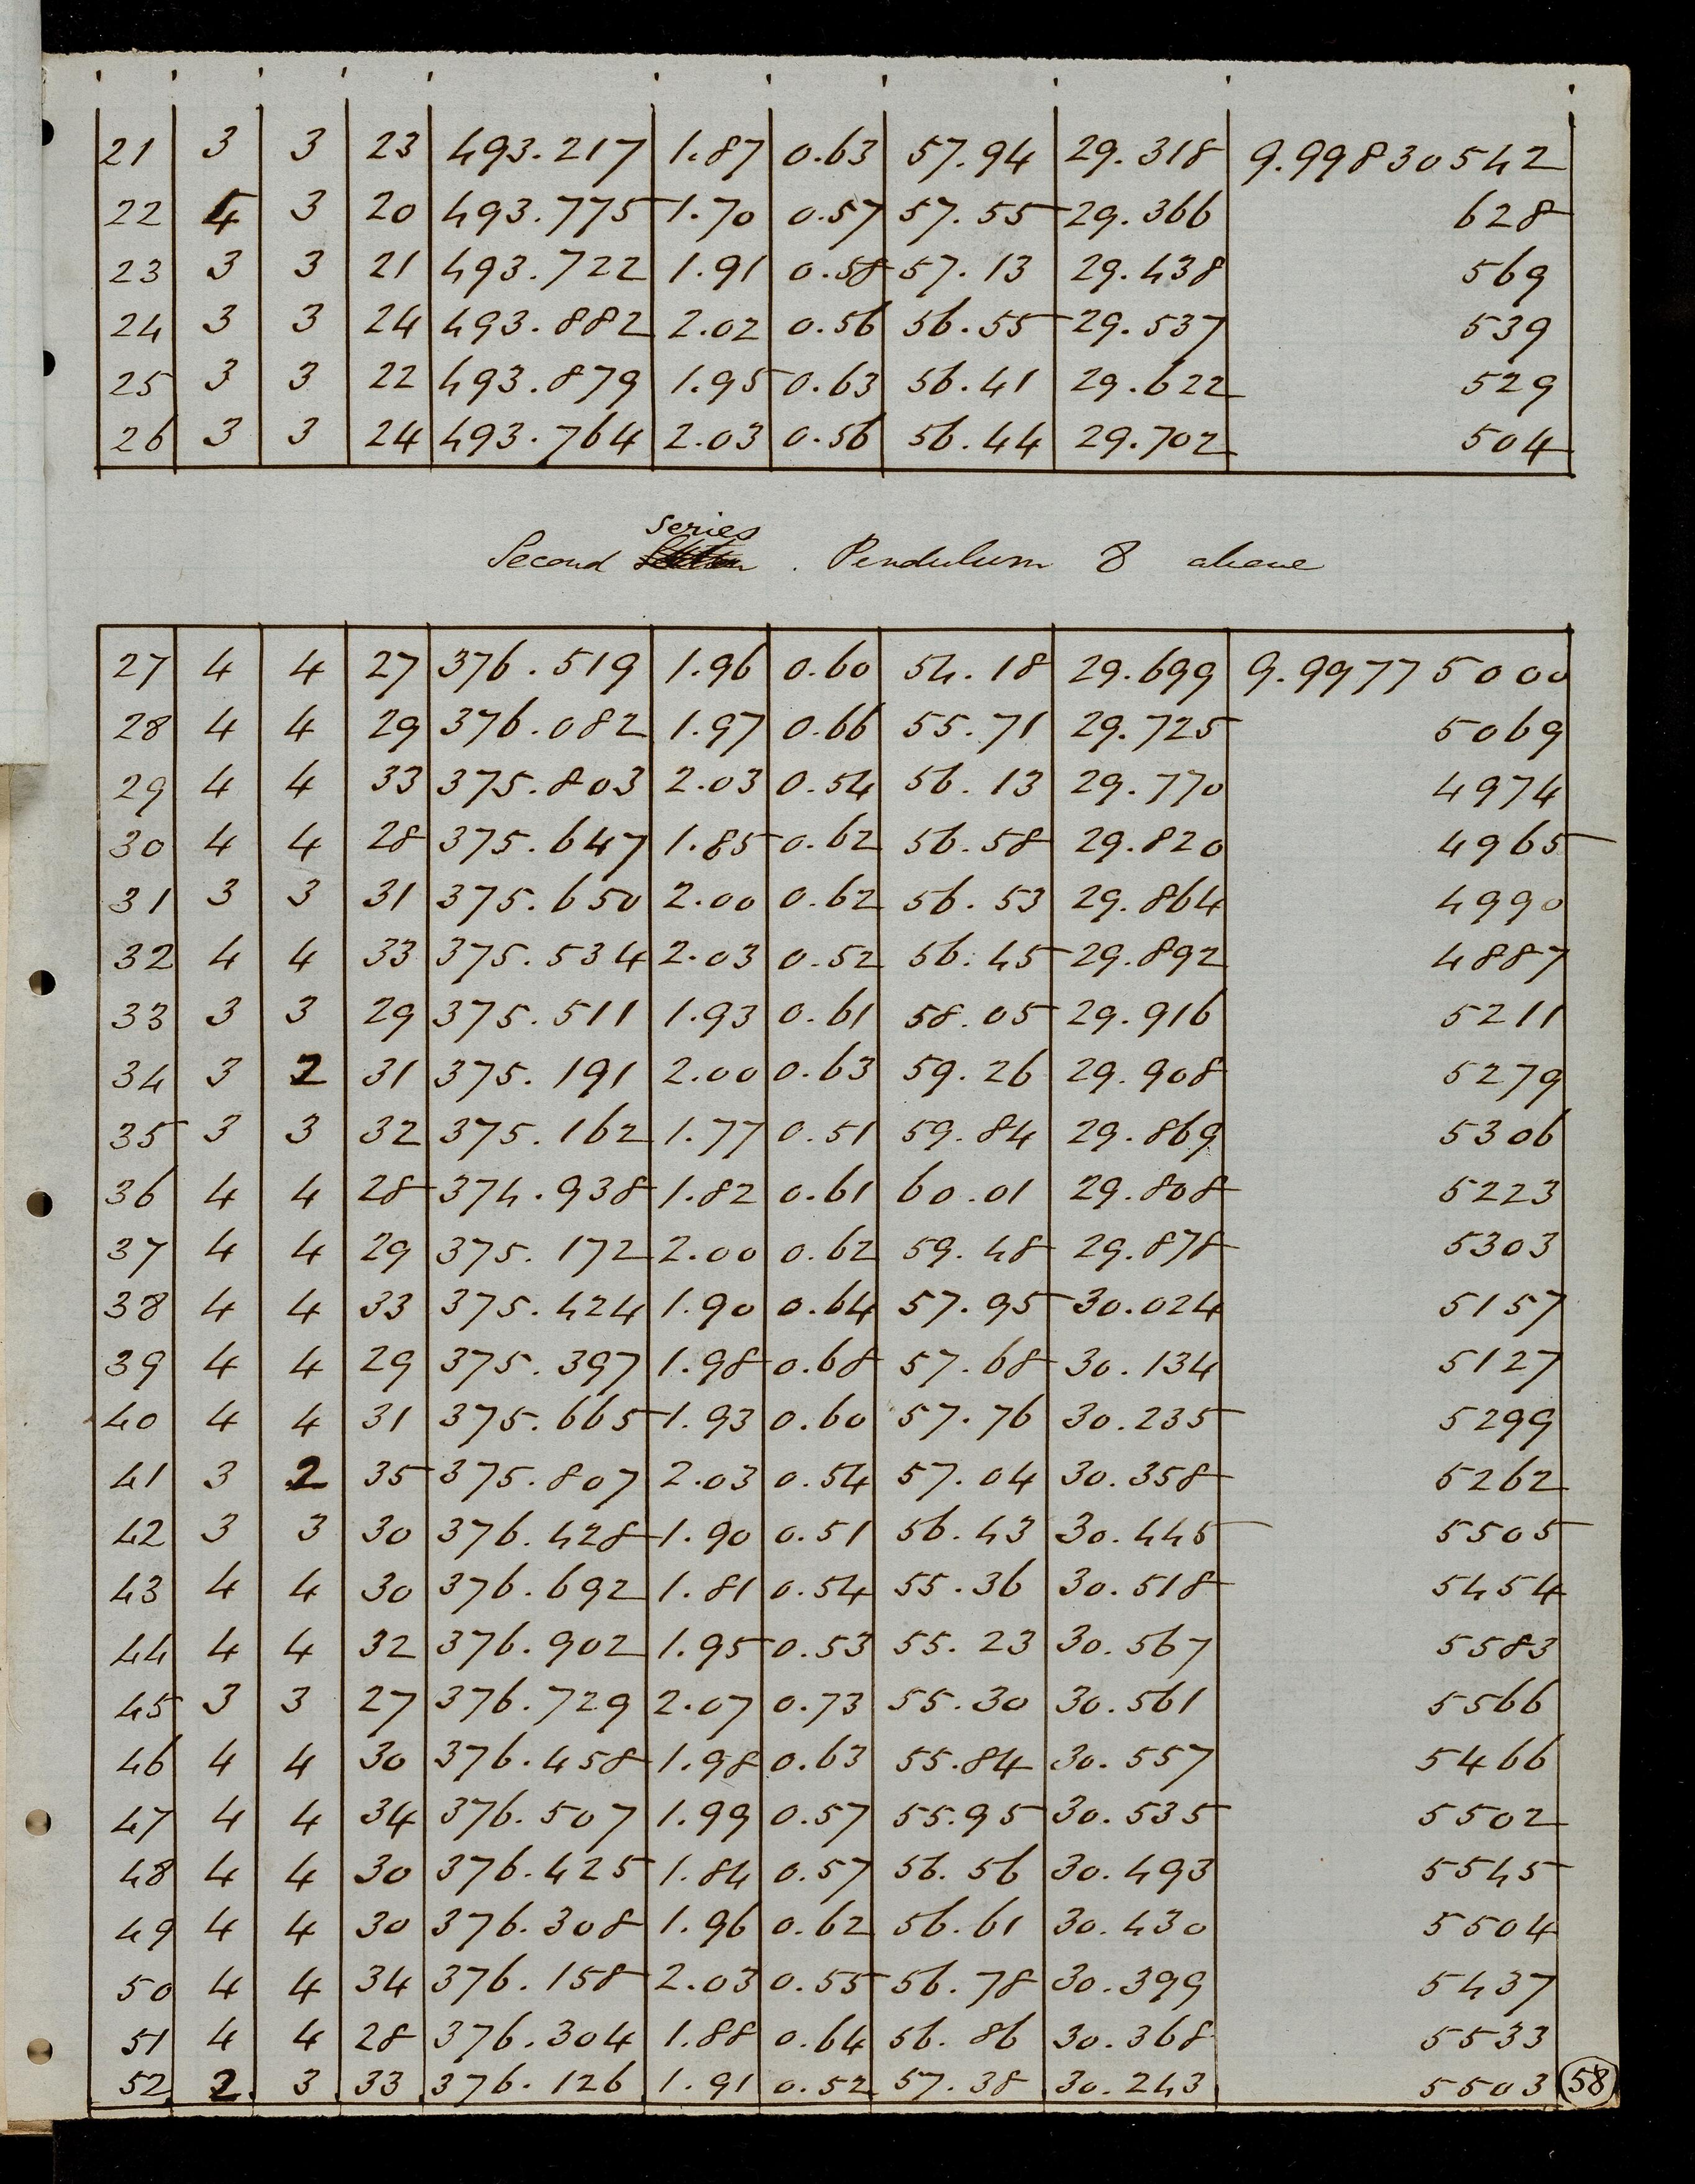 21 3 3 23 493.217 1.87 0.63 57.94 29.318 9.998830542
22 4 3 20 493.775 1.70 0.57 57.55 29.366 628
23 3 3 21 493.722 1.91 0.58 57.13 29.438 569
24 3 3 24 493.882 2.02 0.56 56.55 29.537 539
25 3 3 22 493.879 1.95 0.63 56.41 29.622 529
26 3 3 24 493.764 2.03 0.56 56.44 29.702 504
Second series . Pendulum 8 above
27 4 4 27 376.519 1.96 0.60 54.18 29.699 9.997775000
28 4 4 29 376.082 1.97 0.66 55.71 29.725 5069
29 4 4 33 375.803 2.03 0.54 56.13 29.770 4974
30 4 4 28 375.647 1.85 0.62 56.58 29.820 4965
31 3 3 31 375.650 2.00 0.62 56.53 29.864 4990
32 4 4 33 375.534 2.03 0.52 56.45 29.892 4887
33 3 3 29 375.511 1.93 0.61 58.05 29.916 5211
34 3 2 31 375.191 2.00 0.63 59.26 29.908 5279
35 3 3 32 375.162 1.77 0.51 59.84 29.869 5306
36 4 4 28 374.938 1.82 0.61 60.01 29.808 5223
37 4 4 29 375.172 2.00 0.62 59.48 29.878 5303
38 4 4 33 375.424 1.90 0.64 57.95 30.024 5157
39 4 4 29 375.397 1.98 0.68 57.68 30.134 5127
40 4 4 31 375.665 1.93 0.60 57.76 30.235 5299
41 3 2 35 375.807 2.03 0.54 57.04 30.358 5262
42 3 3 30 376.428 1.90 0.51 56.43 30.445 5505
43 4 4 30 376.692 1.81 0.54 55.36 30.518 5454
44 4 4 32 376.902 1.95 0.53 55.23 30.567 5583
45 3 3 27 376.729 2.07 0.73 55.30 30.561 5566
46 4 4 30 376.458 1.98 0.63 55.84 30.557 5466
47 4 4 34 376.507 1.99 0.57 55.95 30.535 5502
48 4 4 30 376.425 1.84 0.57 56.56 30.493 5545
49 4 4 30 376.308 1.96 0.62 56.61 30.430 5504
50 4 4 34 376.158 2.03 0.55 56.78 30.399 5437
51 4 4 28 376.304 1.88 0.64 56.86 30.368 5533
52 2 3 33 376.126 1.91 0.52 57.38 30.243 5503
58